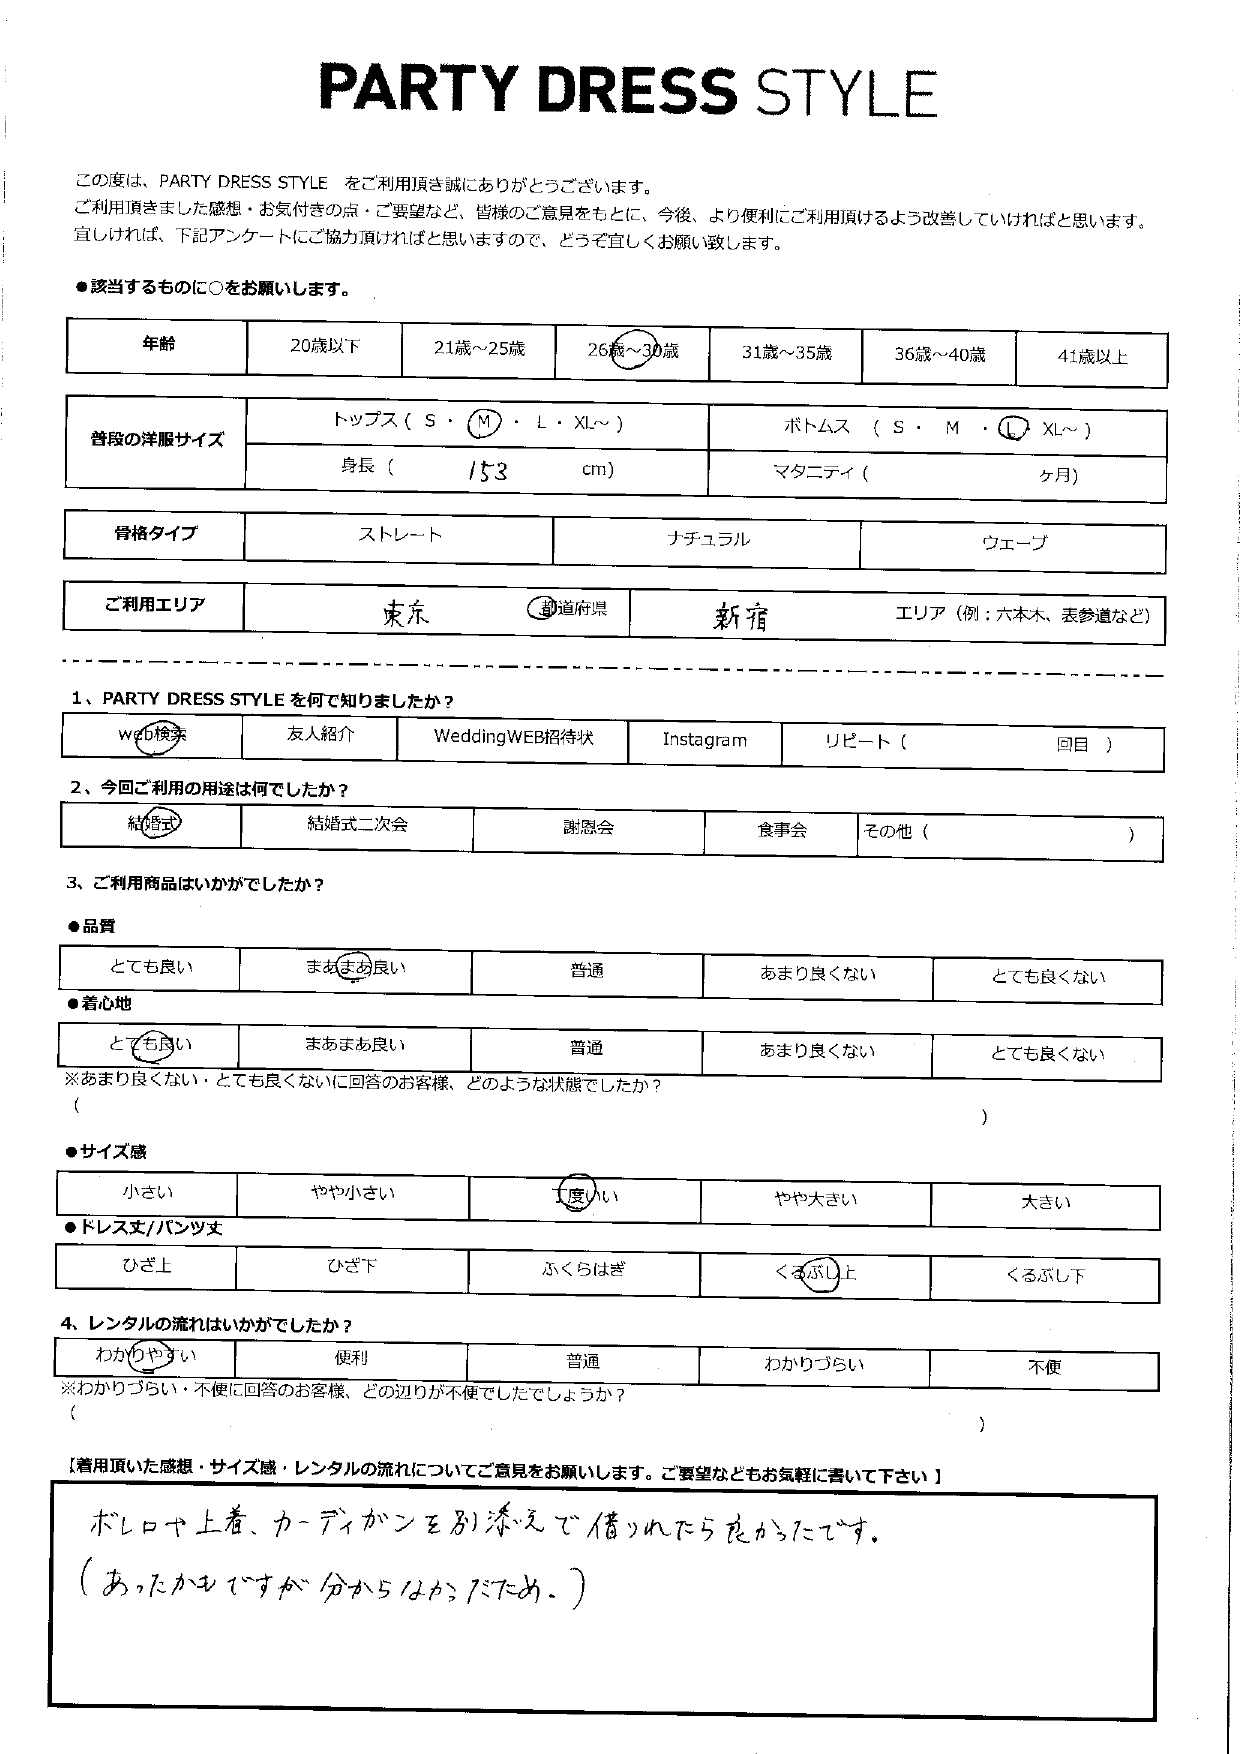 PARTY DRESS STYLE
この度は、PARTY DRESS STYLE をご利用頂き誠にありがとうございます。
ご利用頂きました感想・お気付きの点・ご要望など、皆様のご意見をもとに、今後、より便利にご利用頂けるよう改善していければと思います。
宜しければ、下記アンケートにご協力頂ければと思いますので、どうぞ宜しくお願い致します。
●該当するものに○をお願いします。
年齢 20歳以下 21歳～25歳 26歳～30歳 31歳～35歳 36歳～40歳 41歳以上
普段の洋服サイズ トップス ( S ・ M ・ L ・ XL～ ) ボトムス ( S ・ M ・ L ・ XL～ )
身長 ( 153 cm) マタニティ ( ヶ月)
骨格タイプ ストレート ナチュラル ウェーブ
ご利用エリア 東京 都道府県 新宿 エリア（例：六本木、表参道など）
1、PARTY DRESS STYLE を何で知りましたか？
web検索 友人紹介 WeddingWEB招待状 Instagram リピート ( 回目 )
2、今回ご利用の用途は何でしたか？
結婚式 結婚式二次会 謝恩会 食事会 その他 ( )
3、ご利用商品はいかがでしたか？
●品質
とても良い まあまあ良い 普通 あまり良くない とても良くない
●着心地
とても良い まあまあ良い 普通 あまり良くない とても良くない
※あまり良くない・とても良くないに回答のお客様、どのような状態でしたか？
( )
●サイズ感
小さい やや小さい 丁度いい やや大きい 大きい
●ドレス丈/パンツ丈
ひざ上 ひざ下 ふくらはぎ くるぶし上 くるぶし下
4、レンタルの流れはいかがでしたか？
わかりやすい 便利 普通 わかりづらい 不便
※わかりづらい・不便に回答のお客様、どの辺りが不便でしたでしょうか？
( )
【着用頂いた感想・サイズ感・レンタルの流れについてご意見をお願いします。ご要望などもお気軽に書いて下さい 】
ボレロや上着、カーディガンを別添えで借りれたら良かったです。
(あったかもですが分からなかっだため.)